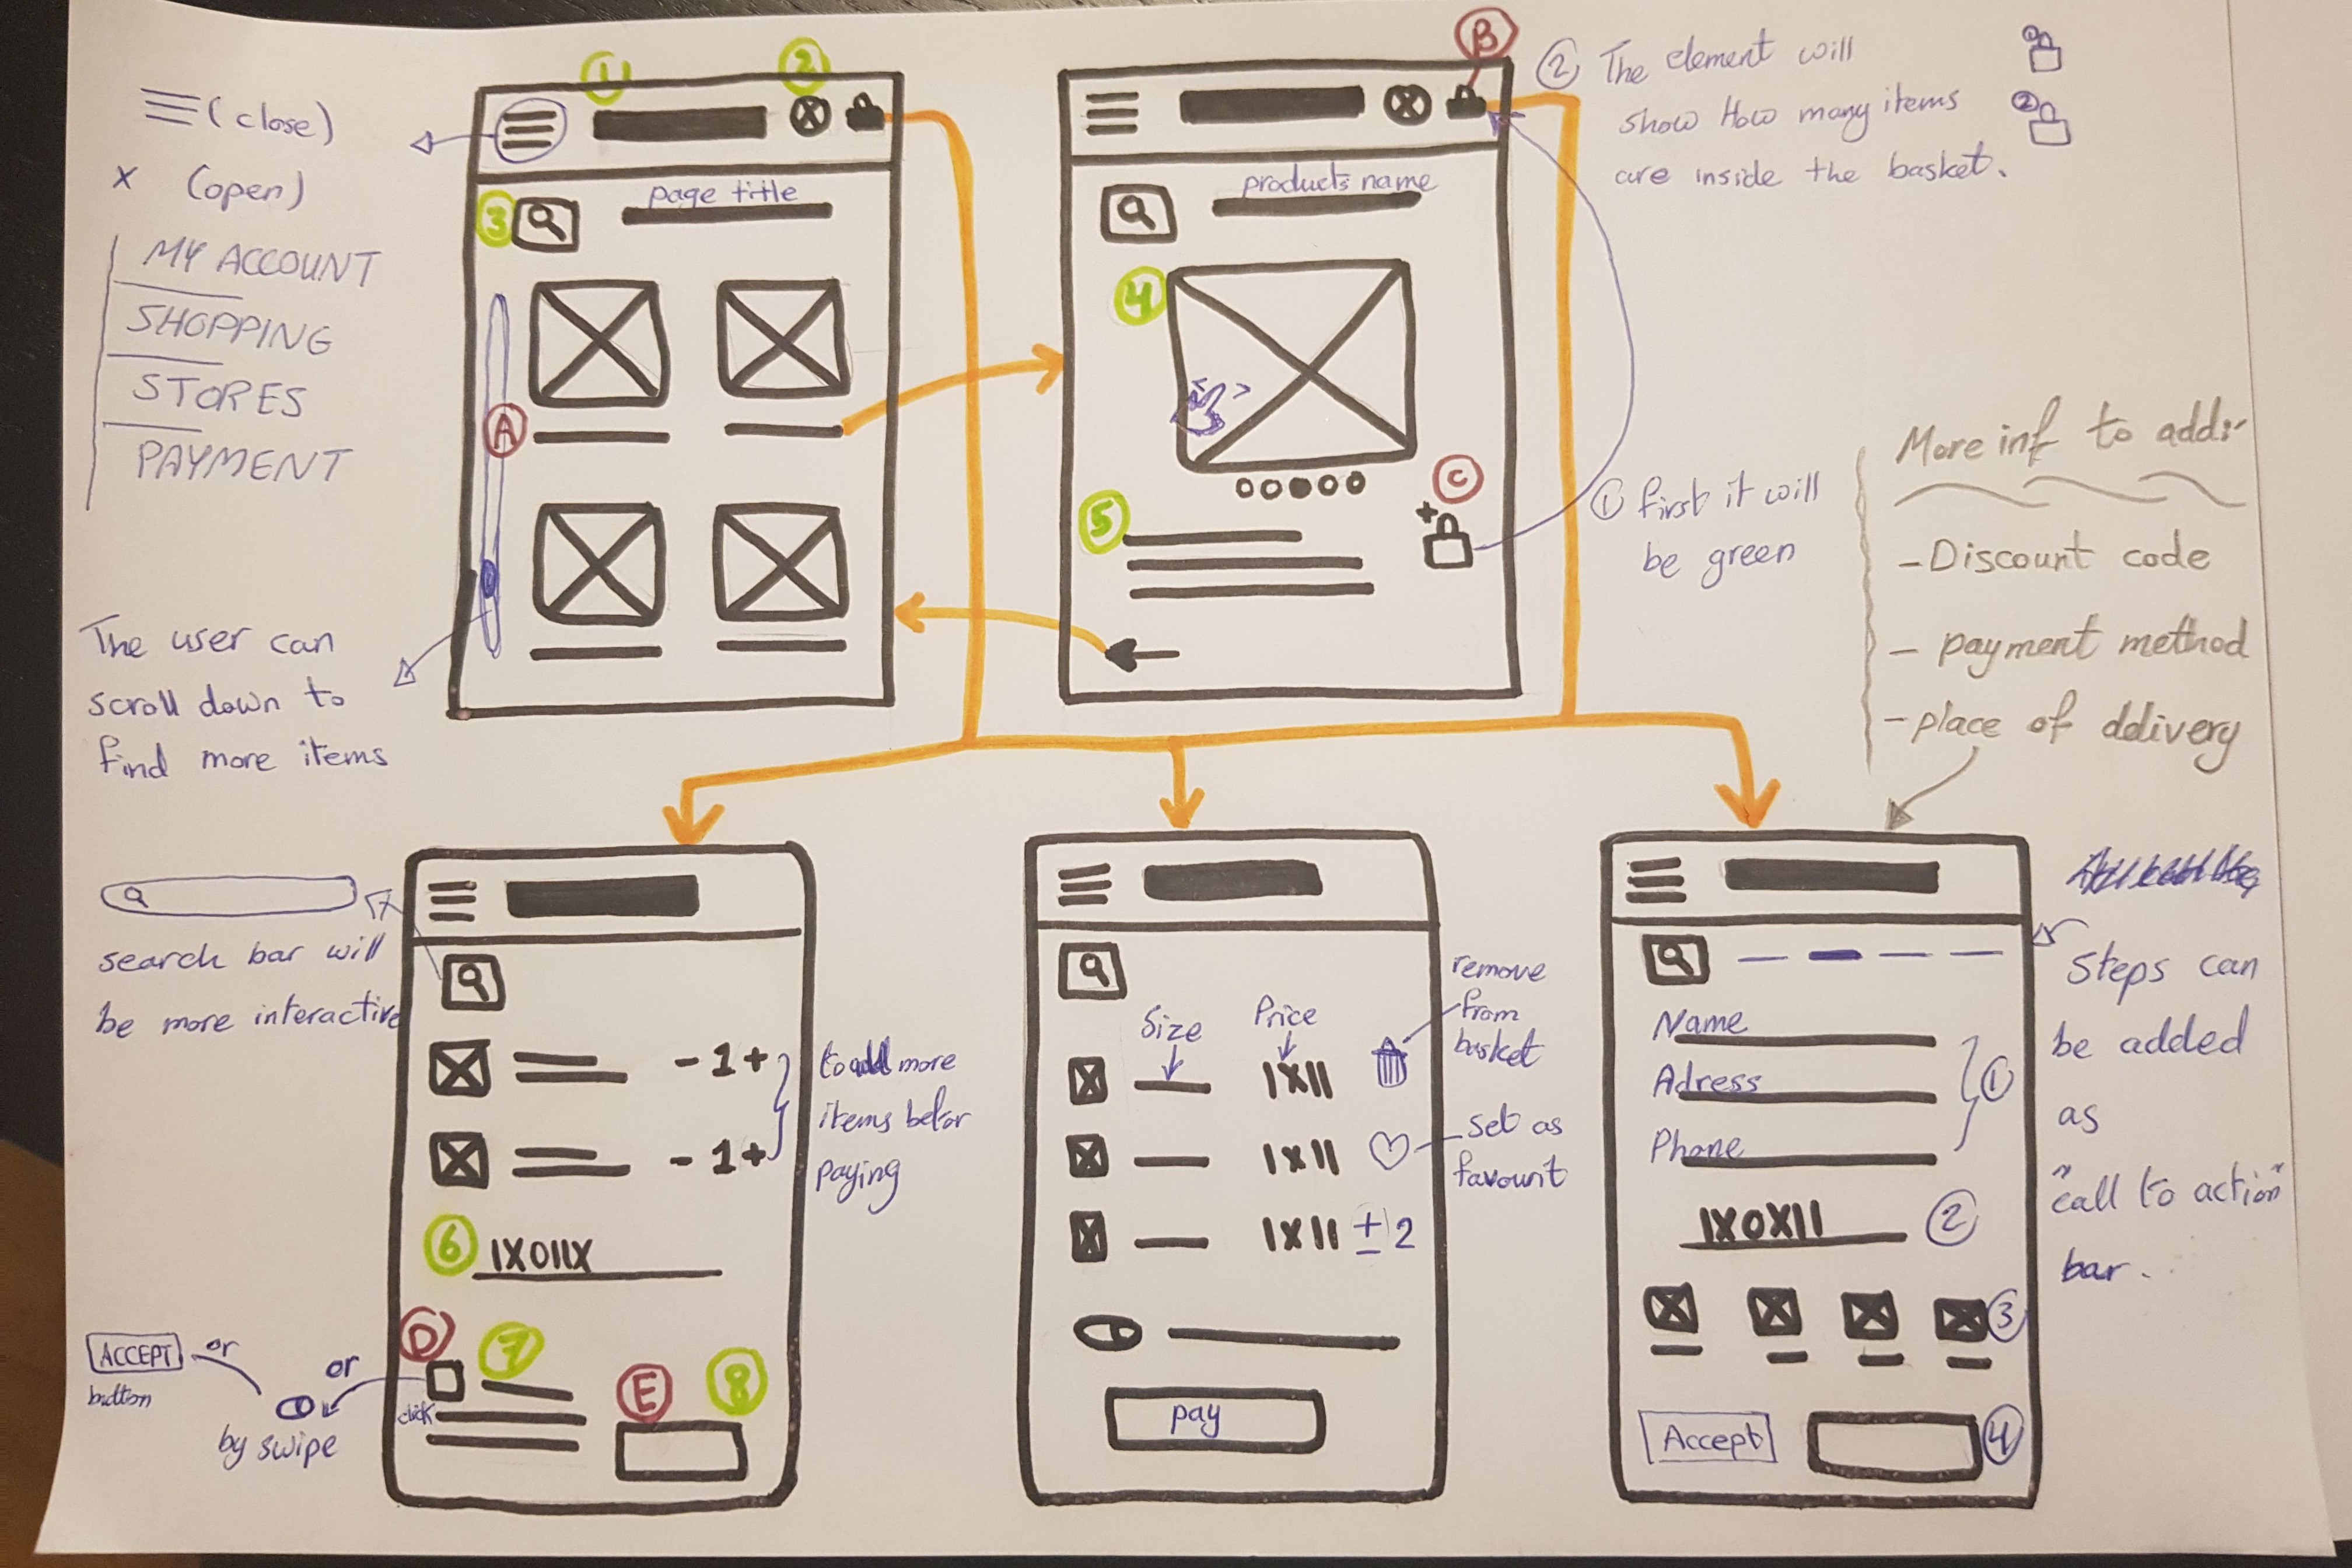 ≡ (close)
x (open)
MY ACCOUNT
SHOPPING
STORES
PAYMENT
The user can
scroll down to
find more items
1
2
3
page title
A
B
products name
4
5
C
② The element will
show How many items
are inside the basket.
1
2
① first it will
be green
More inf to add:-
- Discount code
- payment method
- place of delivery
search bar will
be more interactive
- 1 +
- 1 +
to add more
items befor
paying
6
IXOIIX
D
7
E
8
click
ACCEPT
button
or
or
by swipe
Size
Price
IXII
IXII
IXII
± 2
remove
from
basket
set as
favourit
pay
Name
Adress
Phone
1
IXOXII
2
3
Accept
4
Steps can
be added
as
"call to action"
bar.